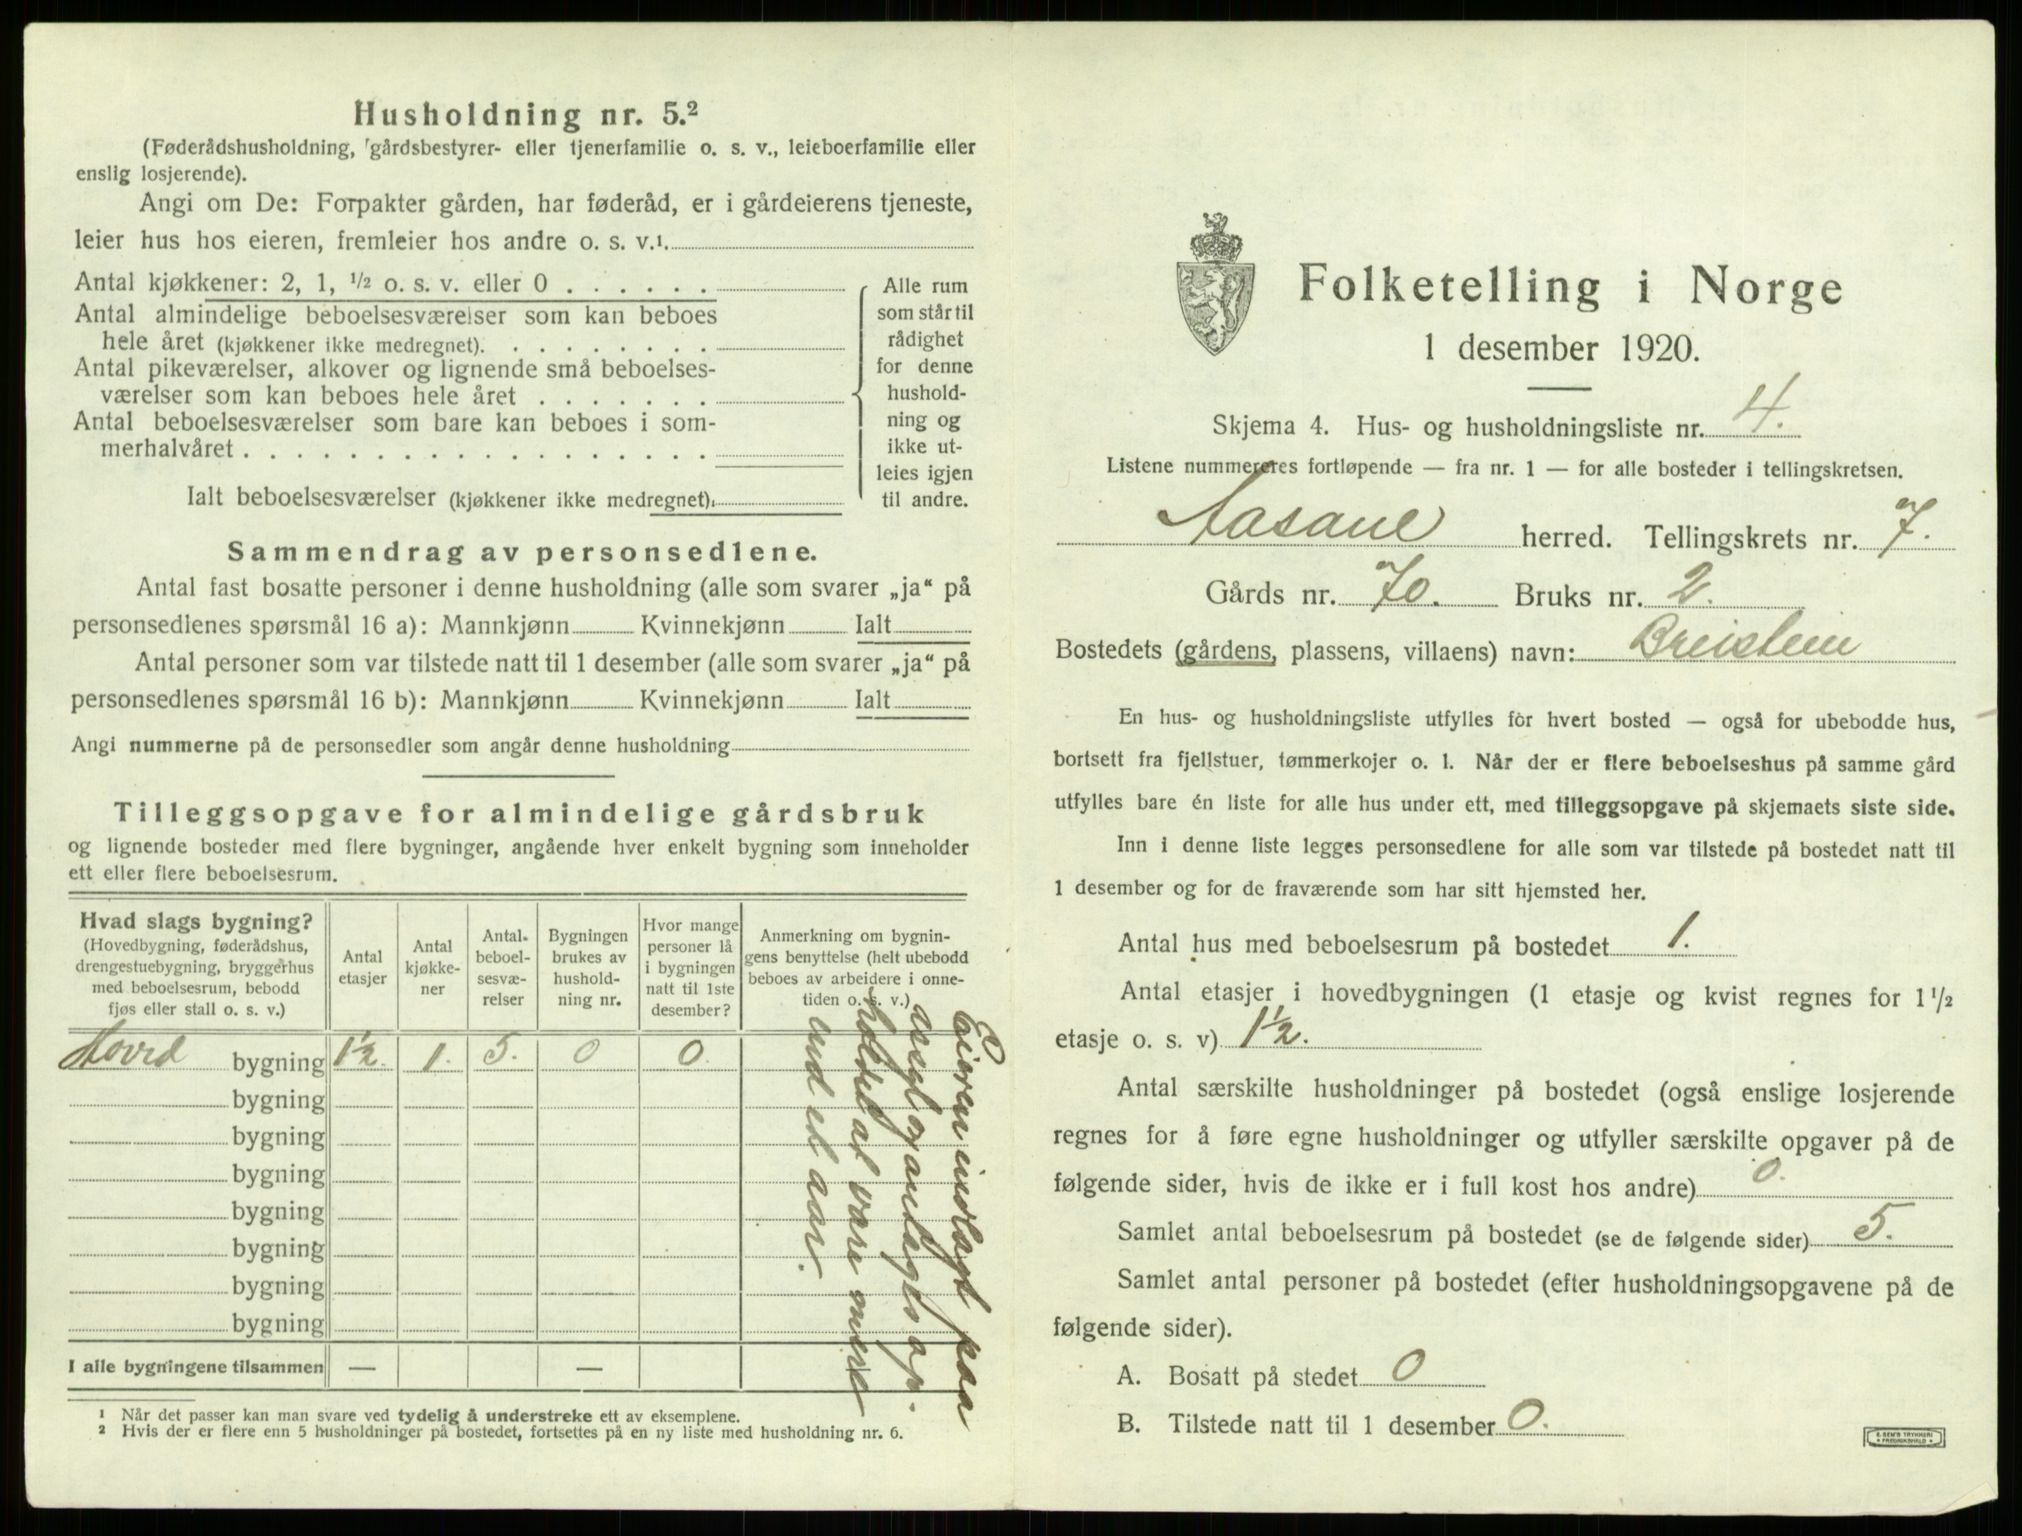 Husholdning nr. 5.²
(Føderådshusholdning, gårdsbestyrer- eller tjenerfamilie o. s. v., leieboerfamilie eller
enslig losjerende).
Angi om De: Forpakter gården, har føderåd, er i gårdeierens tjeneste,
leier hus hos eieren, fremleier hos andre o. s. v.¹
Antal kjøkkener: 2, 1, ¹/₂ o. s. v. eller 0
Antal almindelige beboelsesværelser som kan beboes
hele året (kjøkkener ikke medregnet).
Antal pikeværelser, alkover og lignende små beboelses-
værelser som kan beboes hele året
Antal beboelsesværelser som bare kan beboes i som-
merhalvåret
Ialt beboelsesværelser (kjøkkener ikke medregnet)
Alle rum
som står til
rådighet
for denne
hushold-
ning og
ikke ut-
leies igjen
til andre.
Sammendrag av personsedlene.
Antal fast bosatte personer i denne husholdning (alle som svarer „ja“ på
personsedlenes spørsmål 16 a): Mannkjønn Kvinnekjønn Ialt
Antal personer som var tilstede natt til 1 desember (alle som svarer „ja“ på
personsedlenes spørsmål 16 b): Mannkjønn Kvinnekjønn Ialt
Angi nummerne på de personsedler som angår denne husholdning
Tilleggsopgave for almindelige gårdsbruk
og lignende bosteder med flere bygninger, angående hver enkelt bygning som inneholder
ett eller flere beboelsesrum.
Hvad slags bygning?
(Hovedbygning, føderådshus,
drengestuebygning, bryggerhus
med beboelsesrum, bebodd
fjøs eller stall o. s. v.)
Antal
etasjer
Antal
kjøkke-
ner
Antal
beboel-
sesvæ-
relser
Bygningen
brukes av
hushold-
ning nr.
Hvor mange
personer lå
i bygningen
natt til 1ste
desember?
Anmerkning om bygnin-
gens benyttelse (helt ubebodd
beboes av arbeidere i onne-
tiden o. s. v.)
Hoved bygning 1½. 1. 5. 0 0.
bygning
bygning
bygning
bygning
bygning
bygning
bygning
I alle bygningene tilsammen — —
Eieren indlagt paa
asyl og antages op-
holdet at vare mere
end et aar.
¹ Når det passer kan man svare ved tydelig å understreke ett av eksemplene.
² Hvis der er flere enn 5 husholdninger på bostedet, fortsettes på en ny liste med husholdning nr. 6.
Folketelling i Norge
1 desember 1920.
Skjema 4. Hus- og husholdningsliste nr. 4.
Listene nummereres fortløpende — fra nr. 1 — for alle bosteder i tellingskretsen.
Aasane herred. Tellingskrets nr. 7.
Gårds nr. 70. Bruks nr. 2.
Bostedets (gårdens, plassens, villaens) navn: Breistein
En hus- og husholdningsliste utfylles for hvert bosted — også for ubebodde hus,
bortsett fra fjellstuer, tømmerkojer o. l. Når der er flere beboelseshus på samme gård
utfylles bare én liste for alle hus under ett, med tilleggsopgave på skjemaets siste side.
Inn i denne liste legges personsedlene for alle som var tilstede på bostedet natt til
1 desember og for de fraværende som har sitt hjemsted her.
Antal hus med beboelsesrum på bostedet 1.
Antal etasjer i hovedbygningen (1 etasje og kvist regnes for 1 ¹/₂
etasje o. s. v) 1½.
Antal særskilte husholdninger på bostedet (også enslige losjerende
regnes for å føre egne husholdninger og utfyller særskilte opgaver på de
følgende sider, hvis de ikke er i full kost hos andre) 0.
Samlet antal beboelsesrum på bostedet (se de følgende sider) 5.
Samlet antal personer på bostedet (efter husholdningsopgavene på de
følgende sider).
A. Bosatt på stedet 0
B. Tilstede natt til 1 desember 0.
E. SEM'S TRYKKERI
FREDRIKSHALD